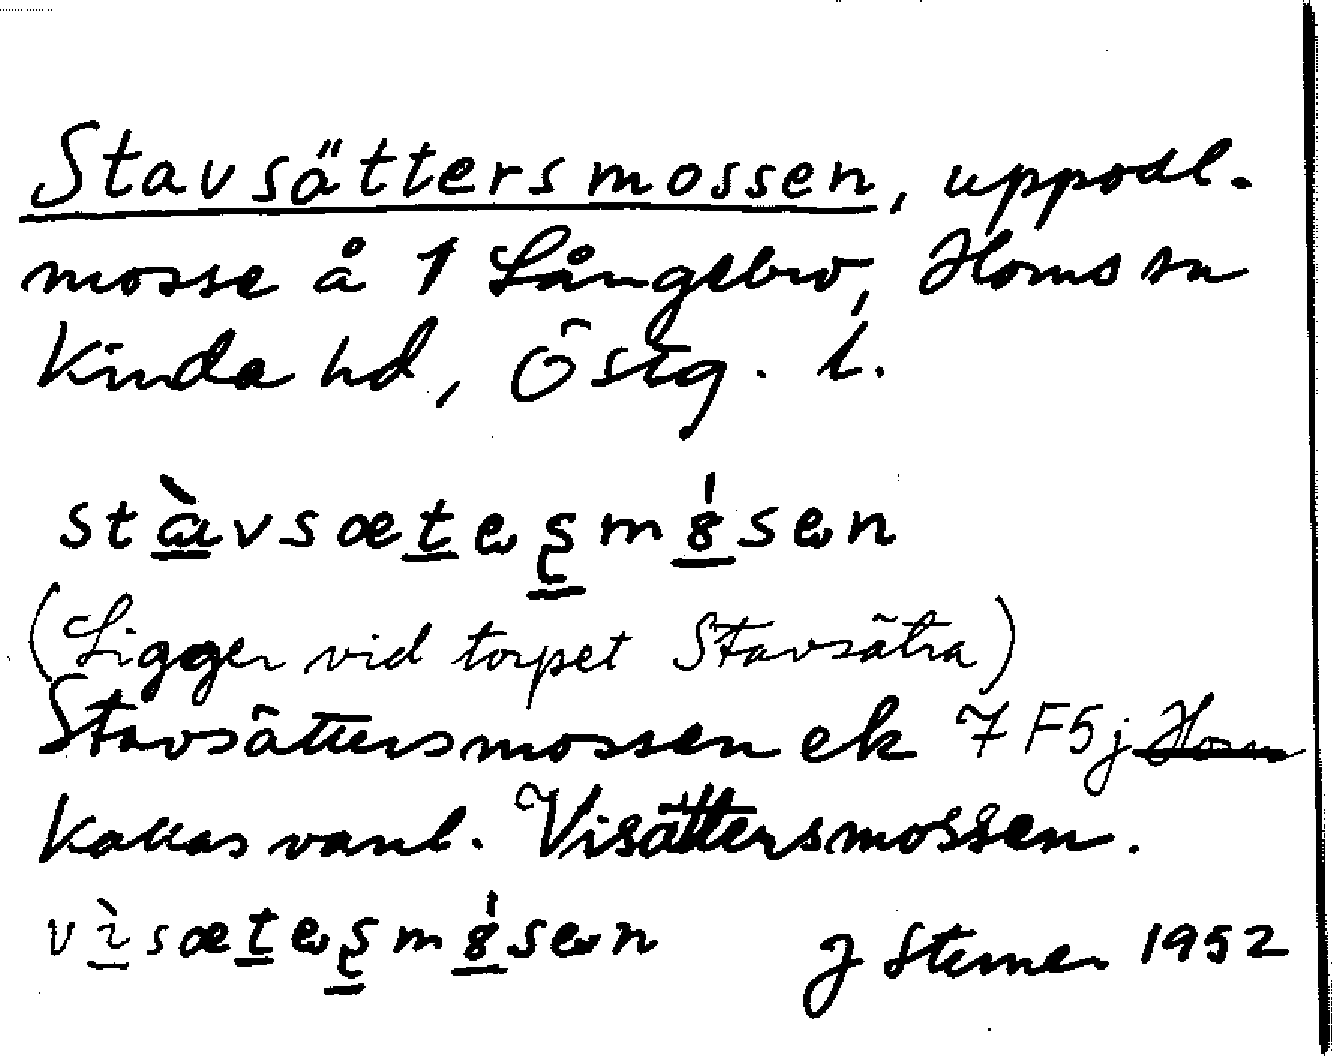 Stavsättersmossen, uppodl.
mosse å 1 Långebro, Horns sn
Kinda hd, Östg. l.
stàvsæteʂmȣ́sen
(Ligger vid torpet Stavsätra)
Stavsättersmossen ek 7F5j Horn
Kallas vanl. Visättersmossen.
vìsæteʂmȣ́sen J Sterner 1952